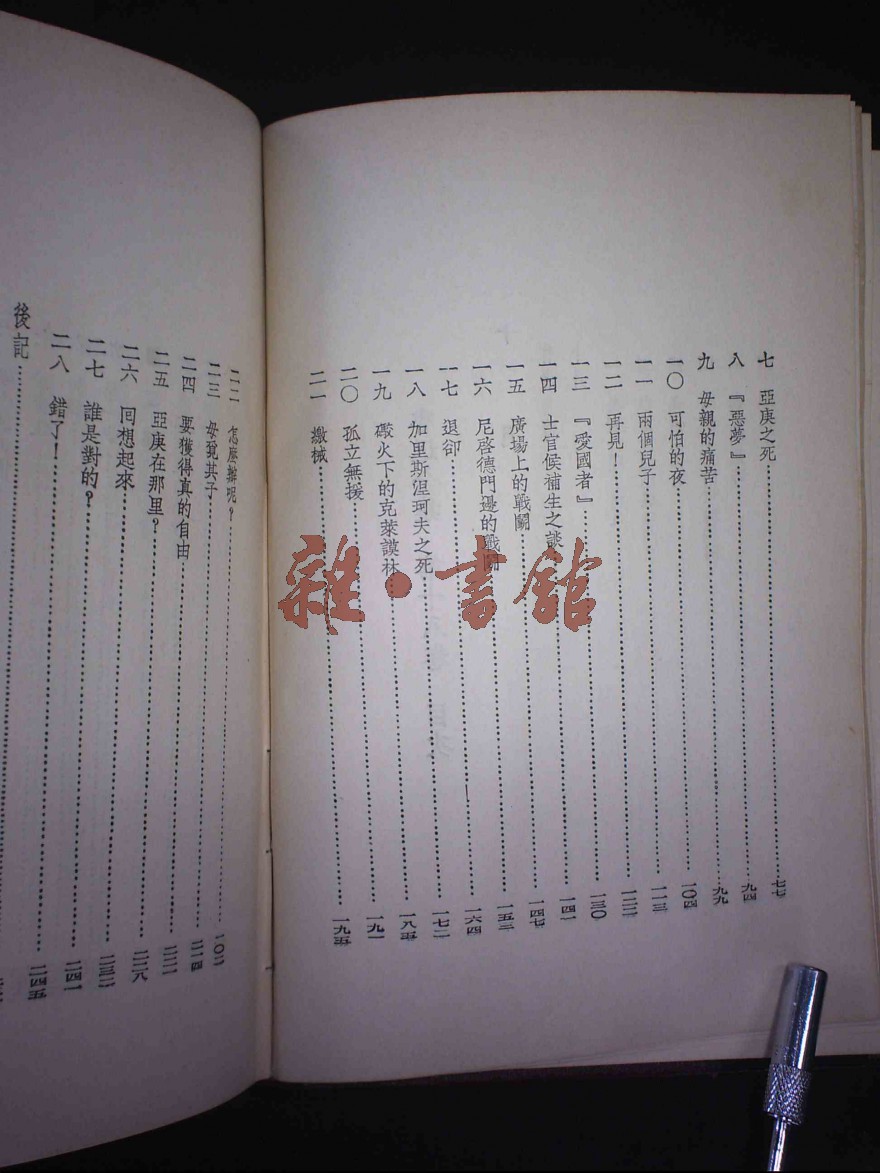 七　亞庚之死……七七
八　『惡夢』……九四
九　母親的痛苦……九九
一〇　可怕的夜……一〇四
一一　兩個兒子……一一三
一二　再見！……一二二
一三　『愛國者』……一三〇
一四　士官候補生之談……一四一
一五　廣場上的戰鬭……一四七
一六　尼啓德門邊的戰鬭……一六四
一七　退卻……一七二
一八　加里斯涅珂夫之死……一八五
一九　礮火下的克萊謨林……一九一
二〇　孤立無援……一九五
二一　繳械
二二　怎麼辦呢？……二〇二
二三　母覓其子……二一四
二四　要獲得真的自由……二二一
二五　亞庚在那里？……二二八
二六　囘想起來……二三二
二七　誰是對的？……二四一
二八　錯了！……二四五
後記
雜·書館